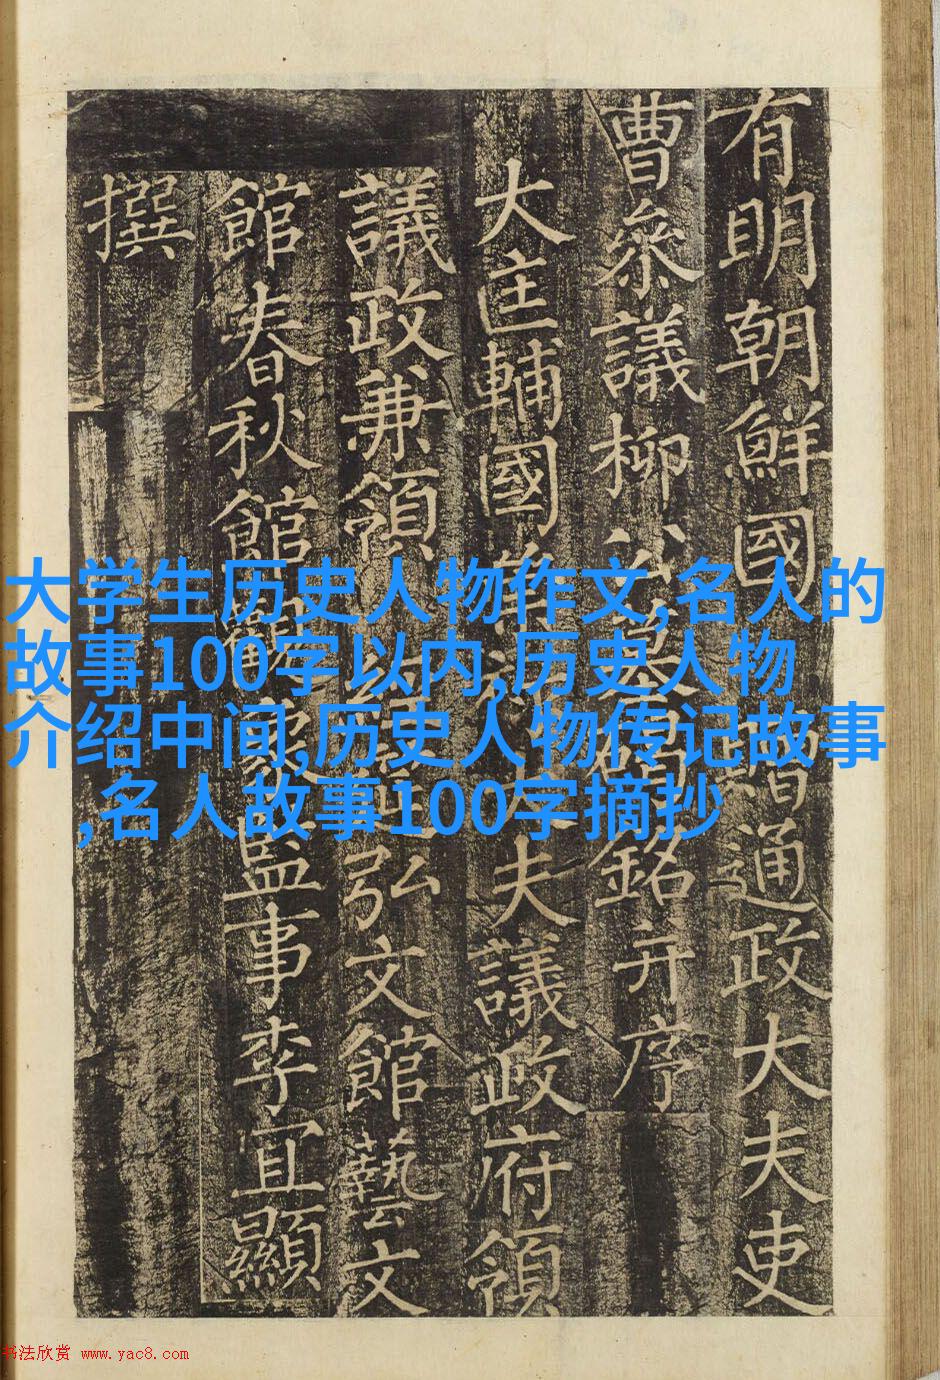 有明朝鮮國贈通政大夫吏
曹參議柳公墓碣銘并序
大匡輔國崇祿大夫議政府領
議政兼領經筵弘文館藝文
館春秋館觀象監事李宜顯
撰
大学生历史人物作文,名人的
故事100字以内,历史人物
介绍中间,历史人物传记故事
,名人故事100字摘抄
书法欣赏 www.yac8.com